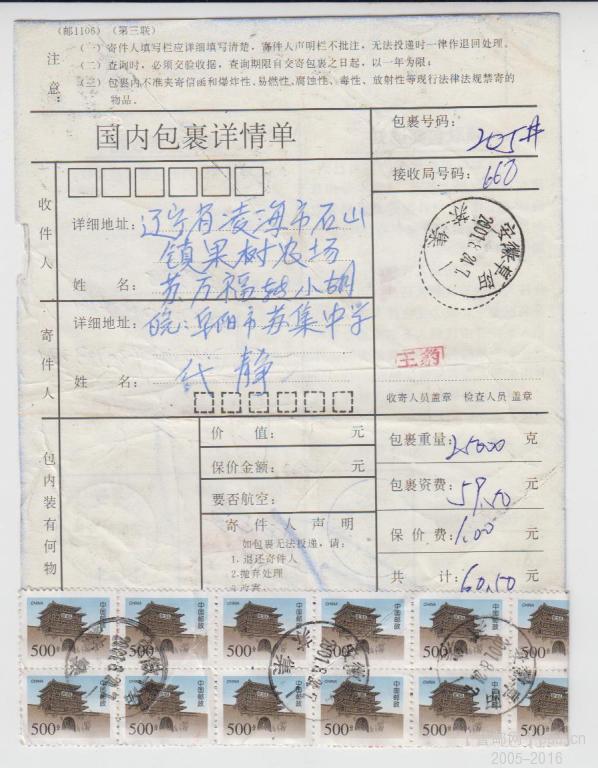 （邮1106）（第三联）
注意：
（一）寄件人填写栏应详细填写清楚，寄件人声明栏不批注，无法投递时一律作退回处理。
（二）查询时，必须交验收据，查询期限自交寄包裹之日起，以一年为限；
（三）包裹内不准夹寄信函和爆炸性、易燃性、腐蚀性、毒性、放射性等现行法律法规禁寄的
物品。
国内包裹详情单
包裹号码：
205#
接收局号码：660
收件人
详细地址：辽宁省凌海市石山
镇果树农场
姓 名：苏万福转小胡
寄件人
详细地址：皖：阜阳市苏集中学
姓 名：代静
安徽阜阳
2001.8.24.7
苏集
王豹
收寄人员盖章 检查人员 盖章
包内装有何物
价 值： 元
保价金额： 元
要否航空：
寄 件 人 声 明
如包裹无法投递，请：
1.退还寄件人
2.抛弃处理
包裹重量：25000 克
包裹资费：59.50 元
保 价 费：1.00 元
共 计：60.50 元
CHINA 中国邮政 500
CHINA 中国邮政 500
CHINA 中国邮政 500
CHINA 中国邮政 500
CHINA 中国邮政 500
中国邮政 500
CHINA 中国邮政 500
CHINA 中国邮政 500
CHINA 中国邮政 500
CHINA 中国邮政 500
CHINA 中国邮政 500
中国邮政 500
2005-2016